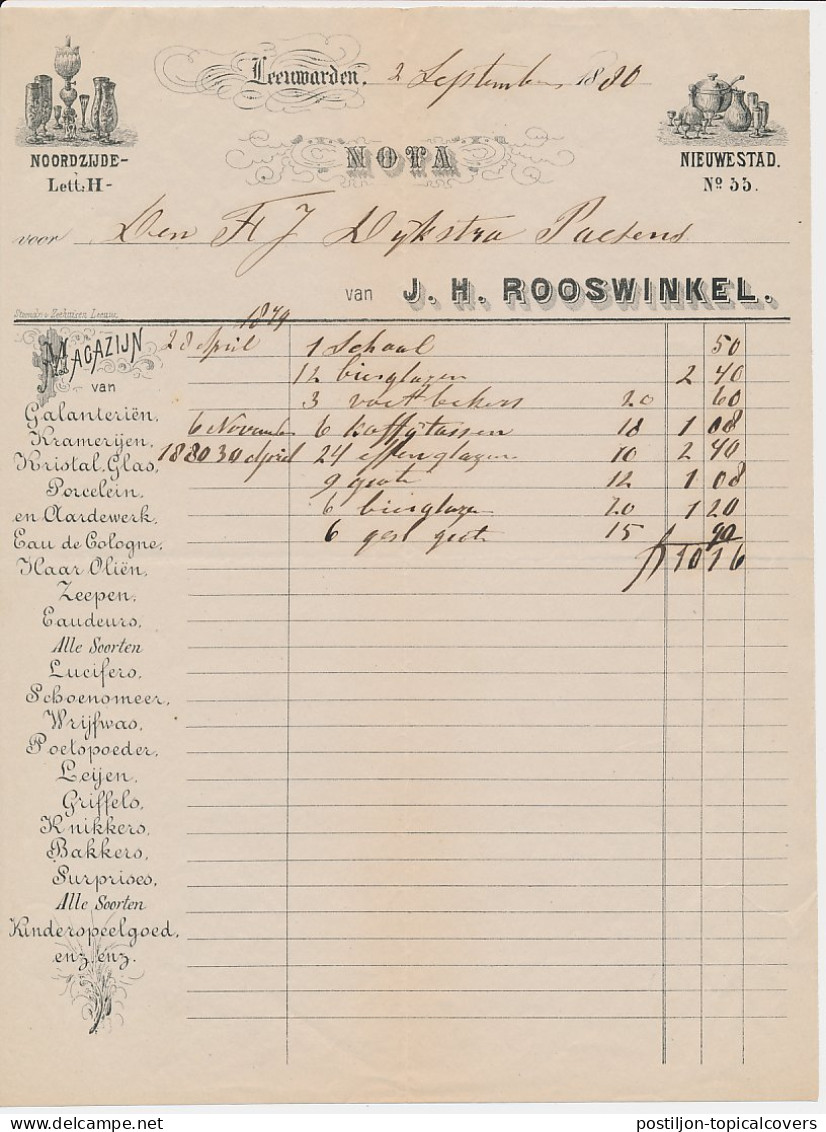 Leeuwarden. 2 September 1880
NOORDZIJDE-
Lett. H-
NOTA
NIEUWESTAD.
No 55.
voor Den H J Dijkstra Paesens
van J. H. ROOSWINKEL.
1879
MAGAZIJN
van
Galanteriën,
Kramerijen,
Kristal, Glas,
Porcelein,
en Aardewerk,
Eau de Cologne,
Haar Oliën,
Zeepen,
Eaudeurs,
Alle Soorten
Lucifers,
Schoensmeer,
Wrijfwas,
Poetspoeder,
Leijen,
Griffels,
Knikkers,
Bakkers,
Surprises,
Alle Soorten
Kinderspeelgoed,
enz. enz.
28 April 1 Schaal 50
12 bierglazen 2 40
3 voetbekers 20 60
6 November 6 koffijtassen 18 1 08
1880 30 April 24 effen glazen 10 2 40
9 groote 12 1 08
6 bierglazen 20 1 20
6 gesl groote 15 90
f 10 16
postiljon-topicalcovers